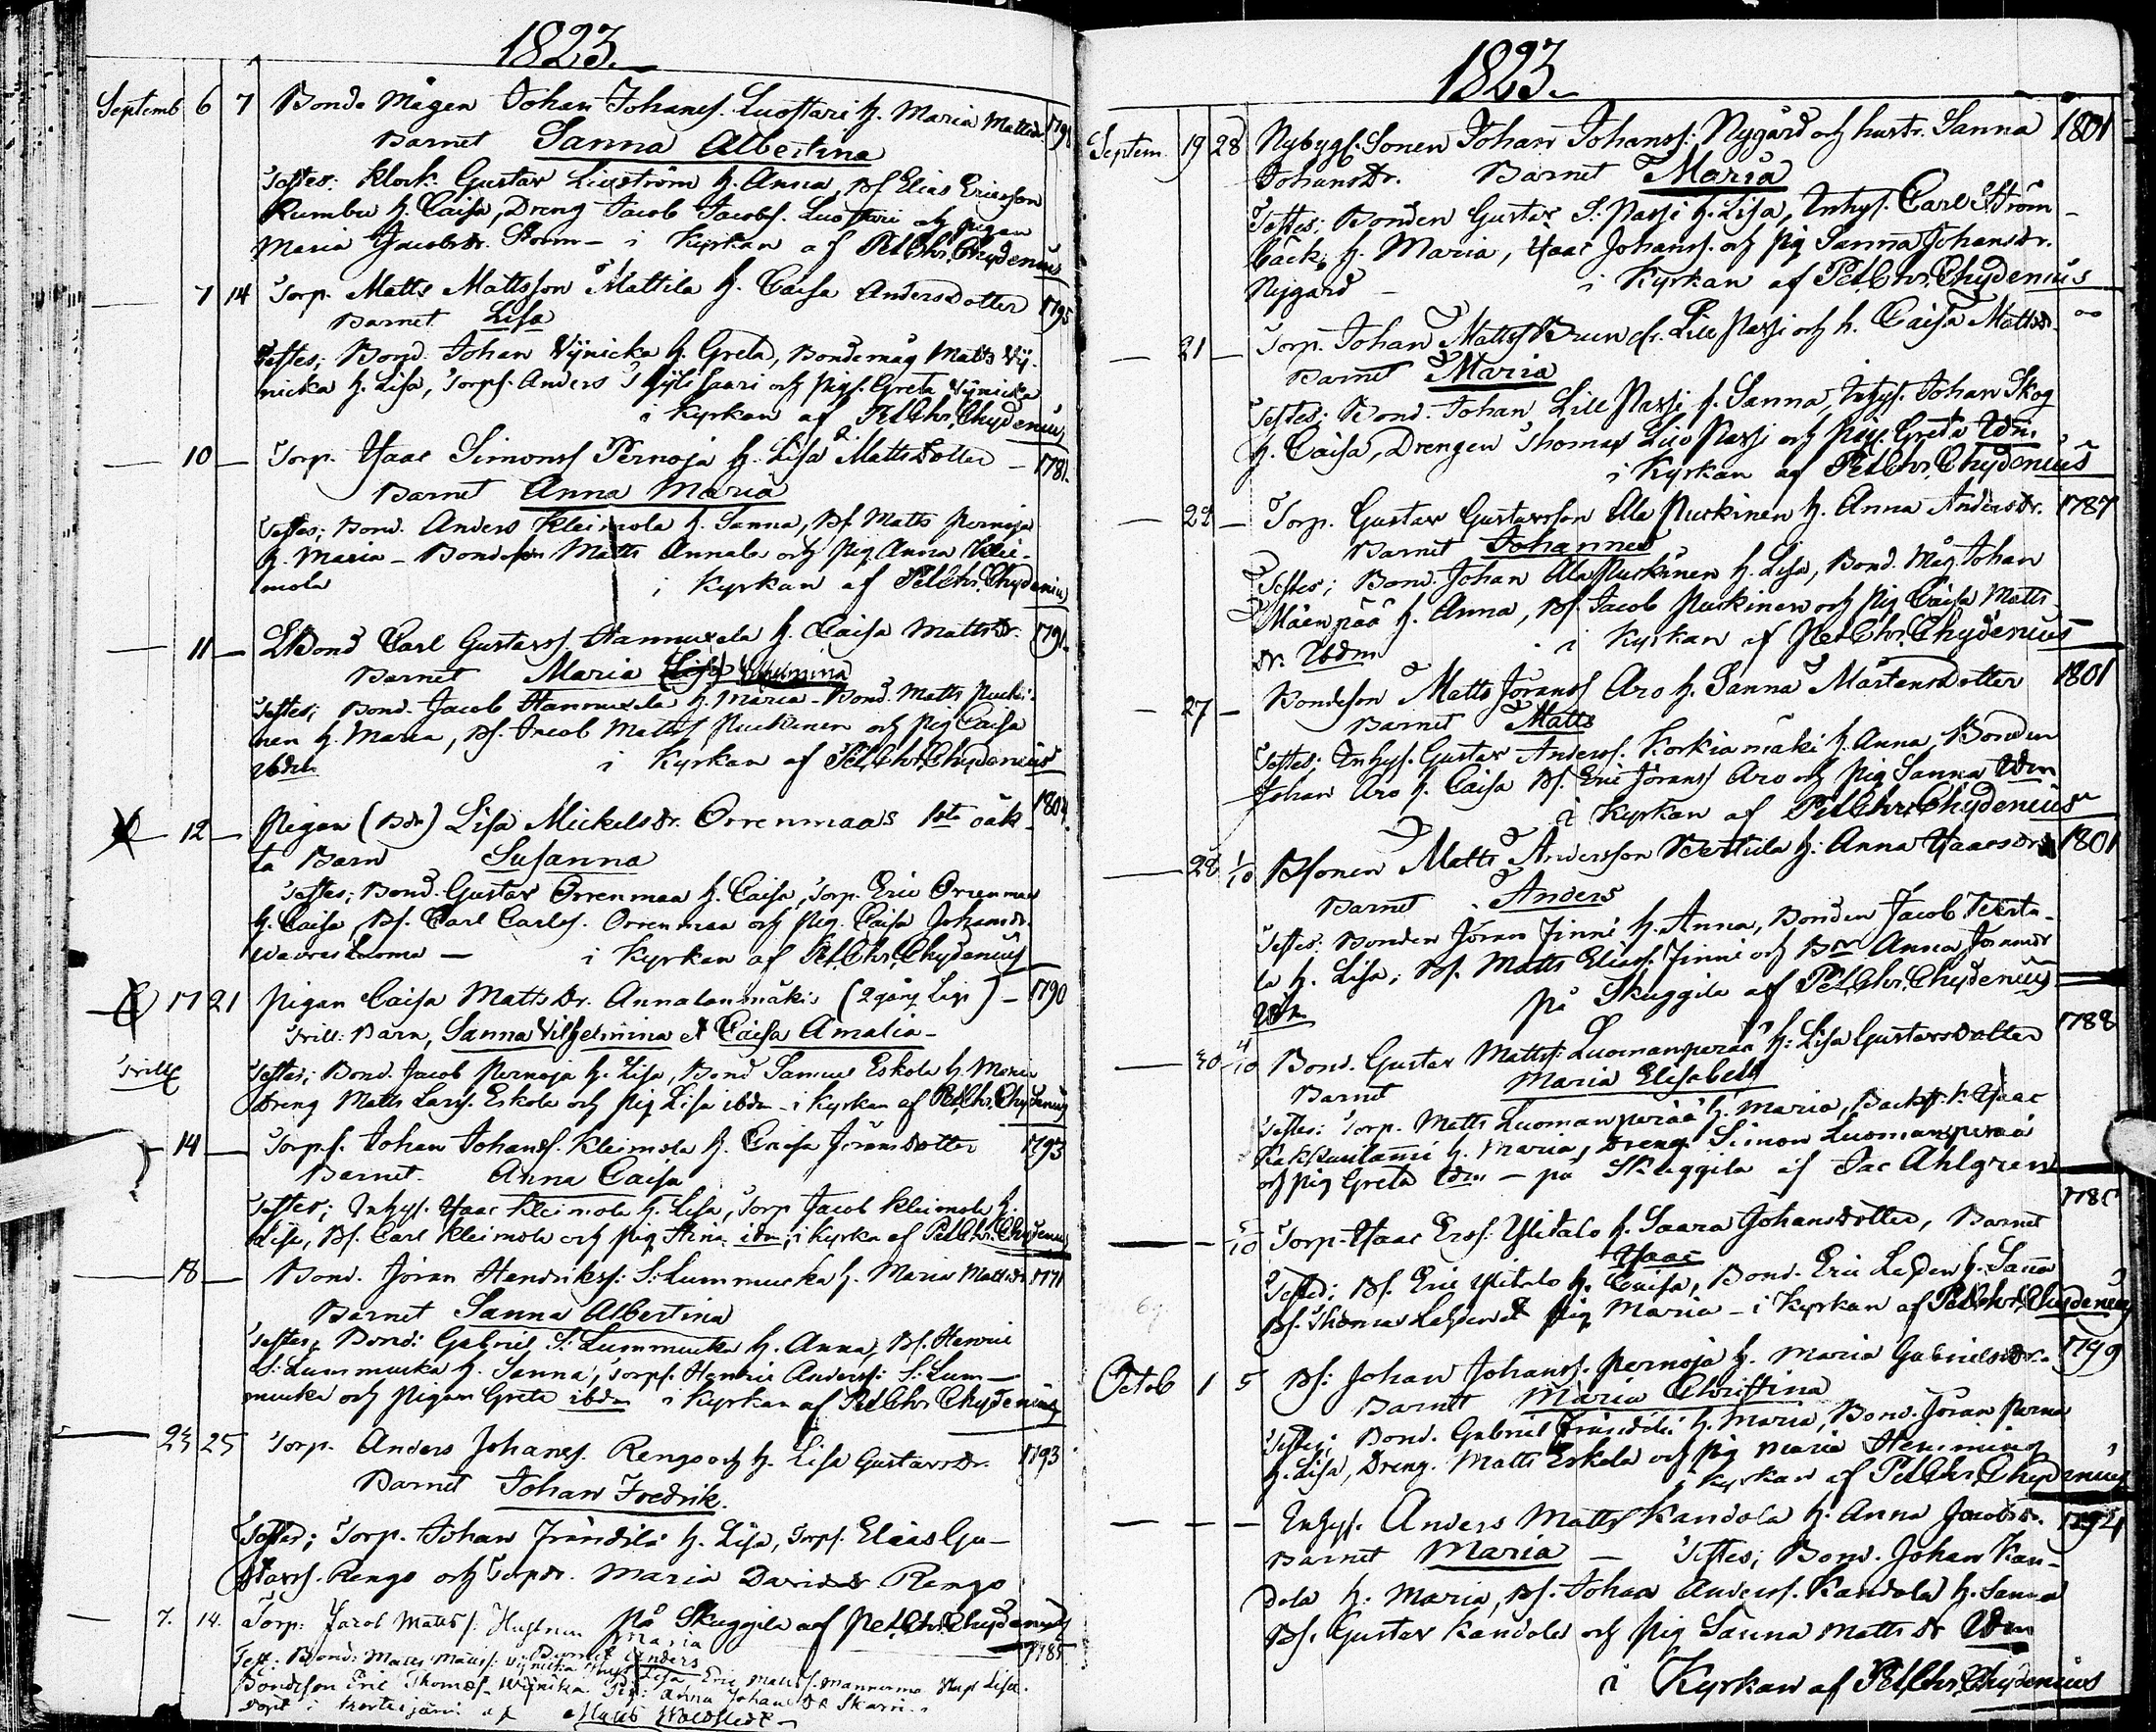 1823.
Septemb 6 7 Bonde Mågen Johan Johanss. Luostari h. Maria Mattsdr. 179
Barnet Sanna Albertina
Testes: Klock. Gustav Livström h. Anna, Bs. Elias Ericsson
Rumbu h. Caisa, Dreng Jacob Jacobs. Luostari och pigan
Maria Jacobsdr. Storm – i Kyrkan af Pet. Chr. Chydenius
— 7 14 Torp. Matts Mattsson Mattila h. Caisa Andersdotter 1795
Barnet Lisa
Testes; Bond. Johan Wynicka h. Greta, Bondemåg Matts Wy-
nicka h. Lisa, Torps. Anders Kylisaari och pig. Greta Wynicka
i Kyrkan af Pet. Chr. Chydenius
— 10 — Torp. Isaac Simonss Pernoja h. Lisa Mattsdotter – 1781.
Barnet Anna Maria
Testes; Bond. Anders Kleimola h. Sanna, Bs. Matts Pernoja
h. Maria – Bondeson Matts Annala och pig. Anna Klei-
mola i Kyrkan af Pet. Chr. Chydenius
— 11 — Bond Carl Gustavss. Hannuxela h. Caisa Mattsdr. 1791.
Barnet Maria (Lisa) Wilhelmina
Testes; Bond. Jacob Hannuxela h. Maria – Bond. Matts Pucki-
nen h. Maria, Bs. Jacob Mattss Puckinen och pig Caisa
ibdm i Kyrkan af Pet. Chr. Chydenius
— 12 — Pigan (Bdr) Lisa Mickelsdr. Orrenmaas 1sta oäk- 1804.
ta Barn Susanna
Testes; Bond. Gustav Orrenmaa h. Caisa, Torp. Eric Orrenmaa
h. Caisa, Bs. Carl Carlss. Orrenmaa och pig. Caisa Johansdr.
i Kyrkan af Pet. Chr. Chydenius
17 21 Pigan Caisa Mattsdr. Annalanmäkis (2 gång) – 1790
Trill: Barn, Sanna Vilhelmina et Caisa Amalia –
Trill: Testes; Bond. Jacob Pernoja h. Lisa, Bond Samuel Eskola h. Maria
Dreng Matts Larss. Eskola och pig Lisa ibdm – i Kyrkan af Pet. Chr. Chydenius
14 — Torps. Johan Johanss. Kleimola h. Caisa Jöransdotter 1793
Barnet. Anna Caisa
Testes; Inhys. Isaac Kleimola h. Lisa, Torp Jacob Kleimola h.
Lisa, Bs. Carl Kleimola och pig Stina ibm, i Kyrka af Pet. Chr. Chydenius
— 18 — Bond. Jöran Hendrikss: S: Lummucka h. Maria Mattsdr. 1771
Barnet Sanna Albertina
Testes, Bond: Gabriel S: Lummucka h. Anna, Bs. Henric
S: Lummucka h. Sanna, Torps. Henric Anderss: S: Lum-
mucka och Pigan Greta ibdm i Kyrkan af Pet. Chr. Chydenius
— 23 25 Torp. Anders Johanss. Rengo och h. Lisa Gustavsdr. 1793
Barnet Johan Fredrik.
Testes; Torp. Johan Frändilä h. Lisa, Torps. Elias Gu-
stavss. Rengo och Torpdr. Maria Davidsdr Rengo
på Skuggila af Pet. Chr. Chydenius
— 7. 14. Torp: Jacob Matts s: Hustrun Maria 1785
Barnet Anders
Test: Bond: Matts Matts s: Wynicka Hust Lisa Eric Matts s. Mannermo Hust Lisa.
Bondeson Eric Thomæs. Wynicka Pig: Anna Johans Dr Skarri.
Döpt i Kortesjärvi af
1823.
Septem. 19 28 Nybygs. Sonen Johan Johanss: Nygård och hustr. Sanna 1801
Johansdr. Barnet Maria
Testes; Bonden Gustav S: Passi h. Lisa, Inhys. Carl Ström-
bäck, h. Maria, Isaac Johanss. och pig Sanna Johansdr.
Nygård – i Kyrkan af Pet. Chr. Chydenius
— 21 — Torp. Johan Mattss Brun fr. Lill Passi och h. Caisa Mattsdr.
Barnet Maria
Testes; Bond. Johan Lill Passi h. Sanna, Inhys. Johan Skog
h. Caisa, Drengen Thomas Lill Passi och pig. Greta Ibdm.
i Kyrkan af Pet. Chr. Chydenius
— 22 — Torp. Gustav Gustavsson Ala Purkinen h. Anna Andersdr. 1787
Barnet Johannes
Testes; Bond. Johan Ala Purkinen h. Lisa, Bond. Måg. Johan
Mäenpää h. Anna, Bs. Jacob Purkinen och pig Caisa Matts
dr. Ibdm i Kyrkan af Pet. Chr. Chydenius
— 27 — Bondeson Matts Jöranss Aro h. Sanna Mårtensdotter 1801
Barnet Matts
Testes: Inhys. Gustav Anderss. Korkiamäki h. Anna, Bonden
Johan Aro h. Caisa Bs. Eric Jöranss Aro och pig Sanna Ibdm
i Kyrkan af Pet. Chr. Chydenius
— 28 1/10 Bsonen Matts Andersson Bertula h. Anna Isaacsdr 1801
Barnet Anders
Testes: Bonden Jöran Finni h. Anna, Bonden Jacob Bertu-
la h. Lisa; Bs. Matts Eliass. Finni och Bdr Anna Jöransdr
Ibdm på Skuggila af Pet. Chr. Chydenius
— 30 4/10 Bond. Gustav Mattss: Luomanperää h: Lisa Gustavsdotter 1788
Barnet Maria Elisabeth
Testes: Torp. Matts Luomanperää h. Maria, Isaac
h. Maria, Dreng Simon Luomanperää
och pig Greta Ibdm – på Skuggila af Jac Ahlgren
— 5/10 Torp. Isaac Erss. Ylitalo h. Saara Johansdotter, Barnet
Isaac
Testes; Bs. Eric Ylitalo h. Caisa, Bond. Eric h. Sanna
Bs. Thomas pig Maria – i Kyrkan af Pet. Chr. Chydenius
Octob 1 5 Bs: Johan Johanss. Pernoja h. Maria Gabrielsdr. 1799
Barnet Maria Christina
Testes; Bond. Gabriel Frändilä h. Maria, Bond. Jöran Perna
h. Lisa, Dreng. Matts Eskola och pig Maria Hemming
i Kyrkan af Pet. Chr. Chydenius
— — — Inhys. Anders Mattss Kandola h. Anna Jacobsdr. 1794
Barnet Maria — Testes; Bond. Johan Kan-
dola h. Maria, Bs. Johan Anderss. Kandola h. Sanna
Bs. Gustav Kandola och pig Sanna Matts dr Ibdm
i Kyrkan af Pet. Chr. Chydenius